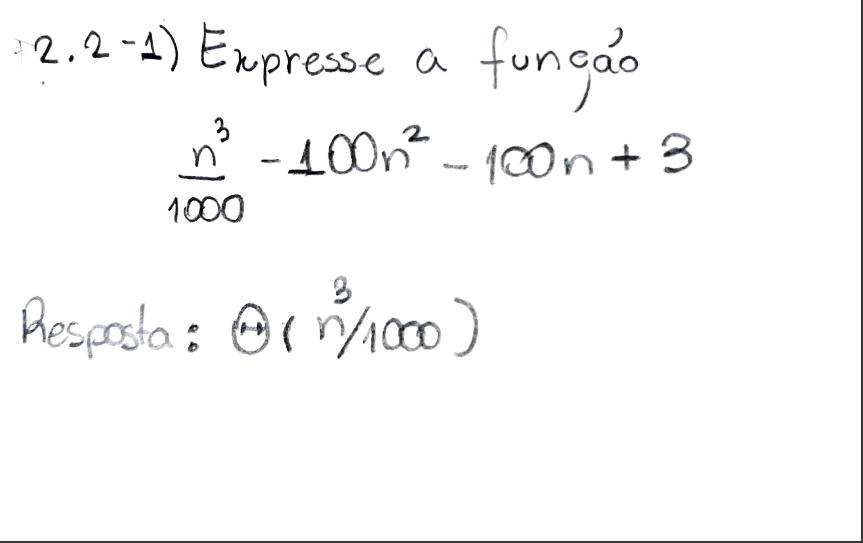 2.2-1) Expresse a função
n³/1000 - 100n² - 100n + 3
Resposta: Θ(n³/1000)